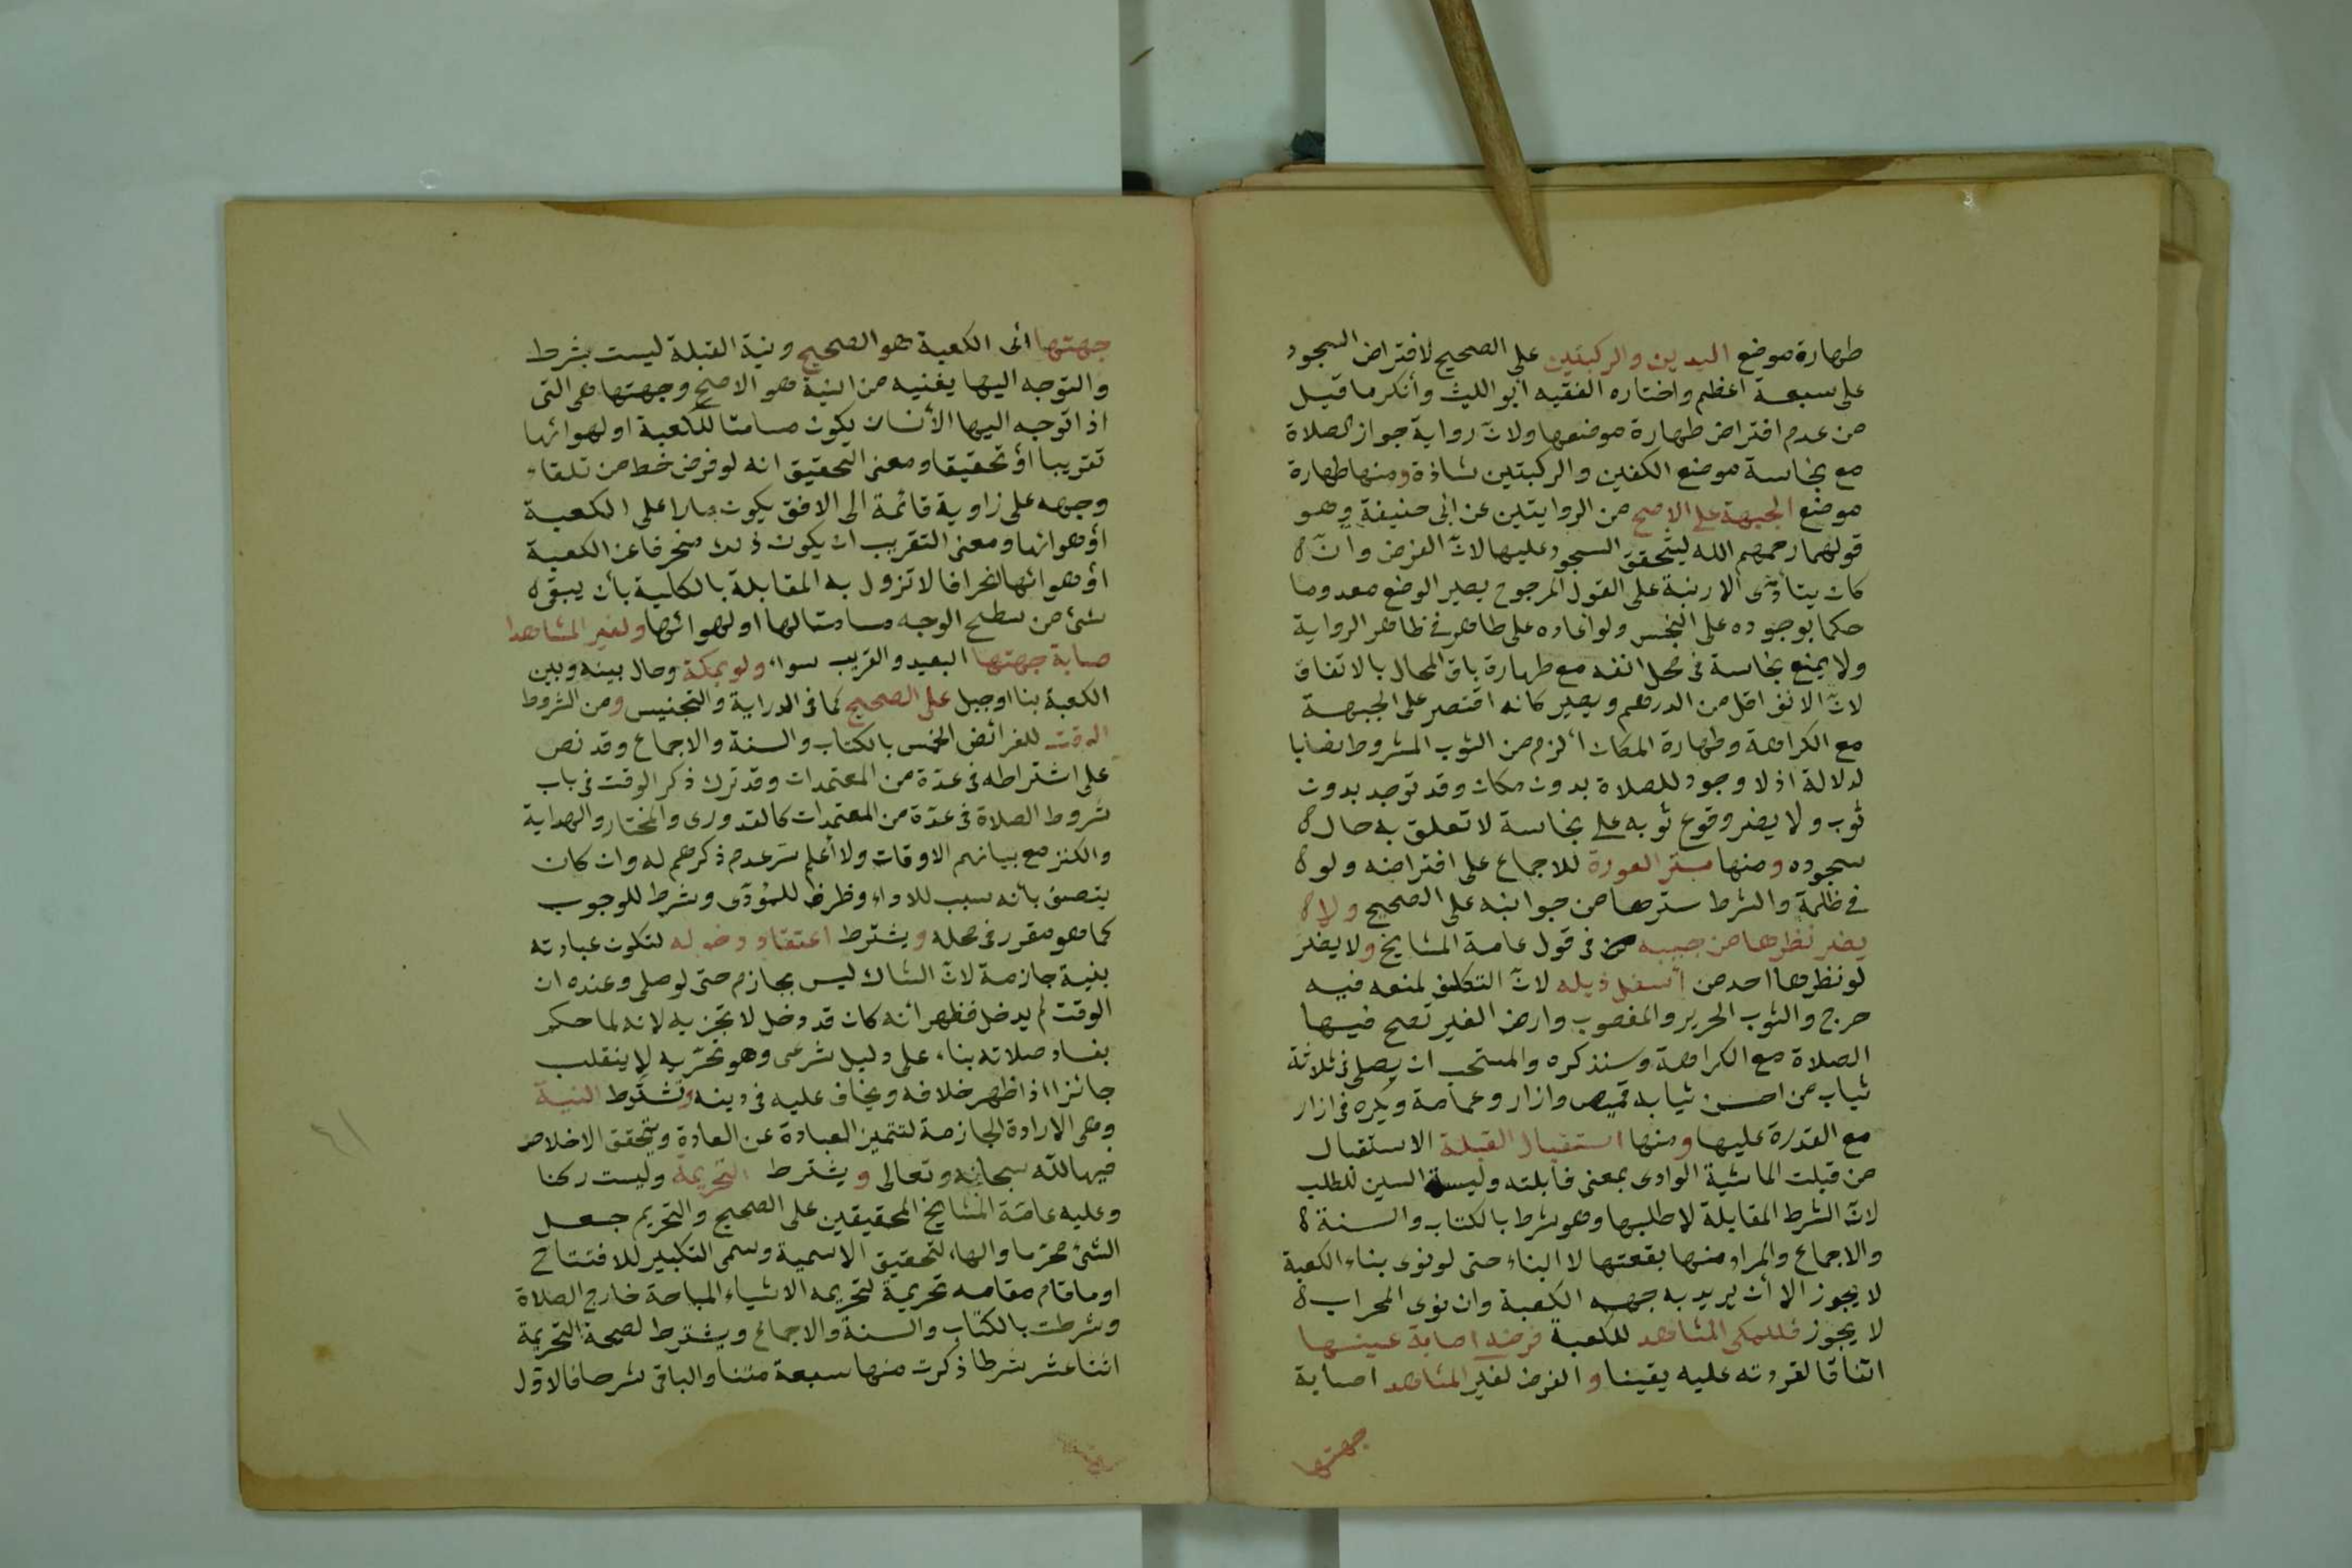 طهارة موضع اليدين والركبتين على الصحيح لافتراض السجود
على سبعة اعظم واختاره الفقيه ابو الليث وأنكر ما قيل
من عدم افتراض طهارة موضعها ولانّ رواية جواز الصلاة
مع نجاسة موضع الكفين والركبتين شاذة ومنها طهارة
موضع الجبهة على الاصح من الروايتين عن ابى حنيفة وهو
قولهما رحمهم الله ليتحقق السجود عليها لانّ الفرض وانّ
كان يتأدّى الارنبة على القول المرجوح يصير الوضع معدوما
حكما بوجوده على النجس ولو اعاده على طاهر فى ظاهر الرواية
ولا يمنع نجاسة فى محل انفه مع طهارة باقى المحال بالاتفاق
لانّ الانف اقل من الدرهم ويصير كانه اقتصر على الجبهة
مع الكراهة وطهارة المكان ألزم من الثوب المشروط نصا با
لدلالة اذ لا وجود للصلاة بدون مكان وقد توجد بدون
ثوب ولا يضر وقوع ثوبه على نجاسة لا تعلق به حال
سجوده ومنها ستر العورة للاجماع على افتراضه ولو
فى ظلمة والشرط سترها من جوانبه على الصحيح ولا
يضر نظرها من جيبه فى قول عامة المشايخ ولا يضر
لو نظرها احد من أسفل ذيله لانّ التكلف لمنعه فيه
حرج والثوب الحرير والمغصوب وارض الغير تصح فيها
الصلاة مع الكراهة وسنذكره والمستحب ان يصلى فى ثلاثة
ثياب من احسن ثيابه قميص وازار وعمامة ويكره فى ازار
مع القدرة عليها ومنها استقبال القبلة الاستقبال
من قبلت الماشية الوادى بمعنى قابلته وليسة السين للطلب
لانّ الشرط المقابلة لا طلبها وهو شرط بالكتاب والسنة
والاجماع والمراد منها بقعتها لا البناء حتى لو نوى بناء الكعبة
لا يجوز الا أن يريد به جهه الكعبة وان نوى المحراب
لا يجوز فللمكى المشاهد للكعبة فرضه اصابة عينها
اتفاقا لقردته عليه يقينا و الفرض لغير المشاهد اصابة
جهتها
جهتها أى الكعبة هو الصحيح ونية القبلة ليست بشرط
والتوجه اليها يغنيه من النية هو الاصح وجهتها هى التى
اذا توجه اليها الأنسان يكون مسامتا للكعبة او لهوائها
تقريبا أو تحقيقا ومعنى التحقيق انه لو فرض خط من تلقاء
وجهه على زاوية قائمة الى الافق يكون مارا على الكعبة
أو هوائها ومعنى التقريب ان يكون ذلك منحرفا عن الكعبة
أو هوائها انحرافا لا تزول به المقابلة بالكلية بأن يبقى
شئ من سطح الوجه مسامتا لها او لهوائها ولغير المشاهد ا
صابة جهتها البعيد والقريب سواء ولو بمكة وحال بينه وبين
الكعبة بنا او جبل على الصحيح كما فى الدراية والتجنيس ومن الشروط
الوقت للفرائض الخمس بالكتاب والسنة والاجماع وقد نص
على اشتراطه فى عدّة من المعتمدات وقد ترك ذكر الوقت فى باب
شروط الصلاة فى عدّة من المعتمدات كالقدورى والمختار والهداية
والكنز مع بيانهم الاوقات ولا أعلم سرّ عدم ذكرهم له وان كان
يتصف بأنه سبب للاداء وظرف للمؤدّى وشرط للوجوب
كما هو مقرر فى محله ويشترط اعتقاد دخوله لتكون عبادته
بنية جازمة لانّ الشاك ليس بجازم حتى لو صلى وعنده ان
الوقت لم يدخل فظهر أنه كان قد دخل لا تجزيه لانه لما حكم
بفساد صلاته بناء على دليل شرعى وهو تحرّيه لا ينقلب
جائزا اذا ظهر خلافه ويخاف عليه فى دينه وتشترط النية
وهى الارادة الجازمة لتتميز العبادة عن العادة ويتحقق الاخلاص
فيها لله سبحانه وتعالى ويشترط التحريمة وليست ركنا
وعليه عامّة المشايخ المحقيقين على الصحيح والتحريم جعل
الشئ محرّما والهاء لتحقيق الاسمية وسمى التكبير للافتتاح
او ما قام مقامه تحريمة لتحريمه الاشياء المباحة خارج الصلاة
وشرطت بالكتاب والسنة والاجماع ويشترط لصحة التحريمة
اثنا عشر شرطا ذكرت منها سبعة متنا والباقى شرحا فالاوّل